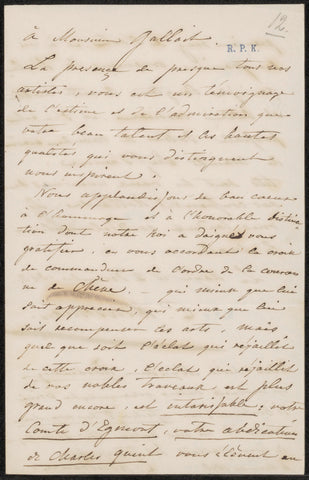 12.
à Monsieur Gallait
R. P. K.
La présence de presque tous nos
artistes, vous est un témoignage
de l'estime et de l'admiration que
votre beau talent et les hautes
qualités qui vous distinguent
nous inspirent.
Nous applaudissons de bon coeur
à l'hommage et à l'honorable distinc
tion dont notre Roi a daigné vous
gratifier, en vous accordant la croix
de commandeur de l'ordre de la couron
ne de Chêne, - qui mieux que lui
sait apprécier, qui mieux que lui
sait recompenser les arts, mais
quel que soit l'éclat qui rejaillit
de cette croix, l'éclat qui rejaillit
de vos nobles travaux est plus
grand encore, est intarissable: votre
Comte d'Egmont, votre abdication
de Charles quint vous élèvent au